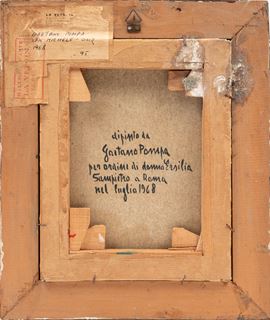 GAETANO POMPA
SAN MICHELE
1968
95
dipinto da
Gaetano Pompa
per ordine di donna Ersilia
Sampietro a Roma
nel luglio 1968